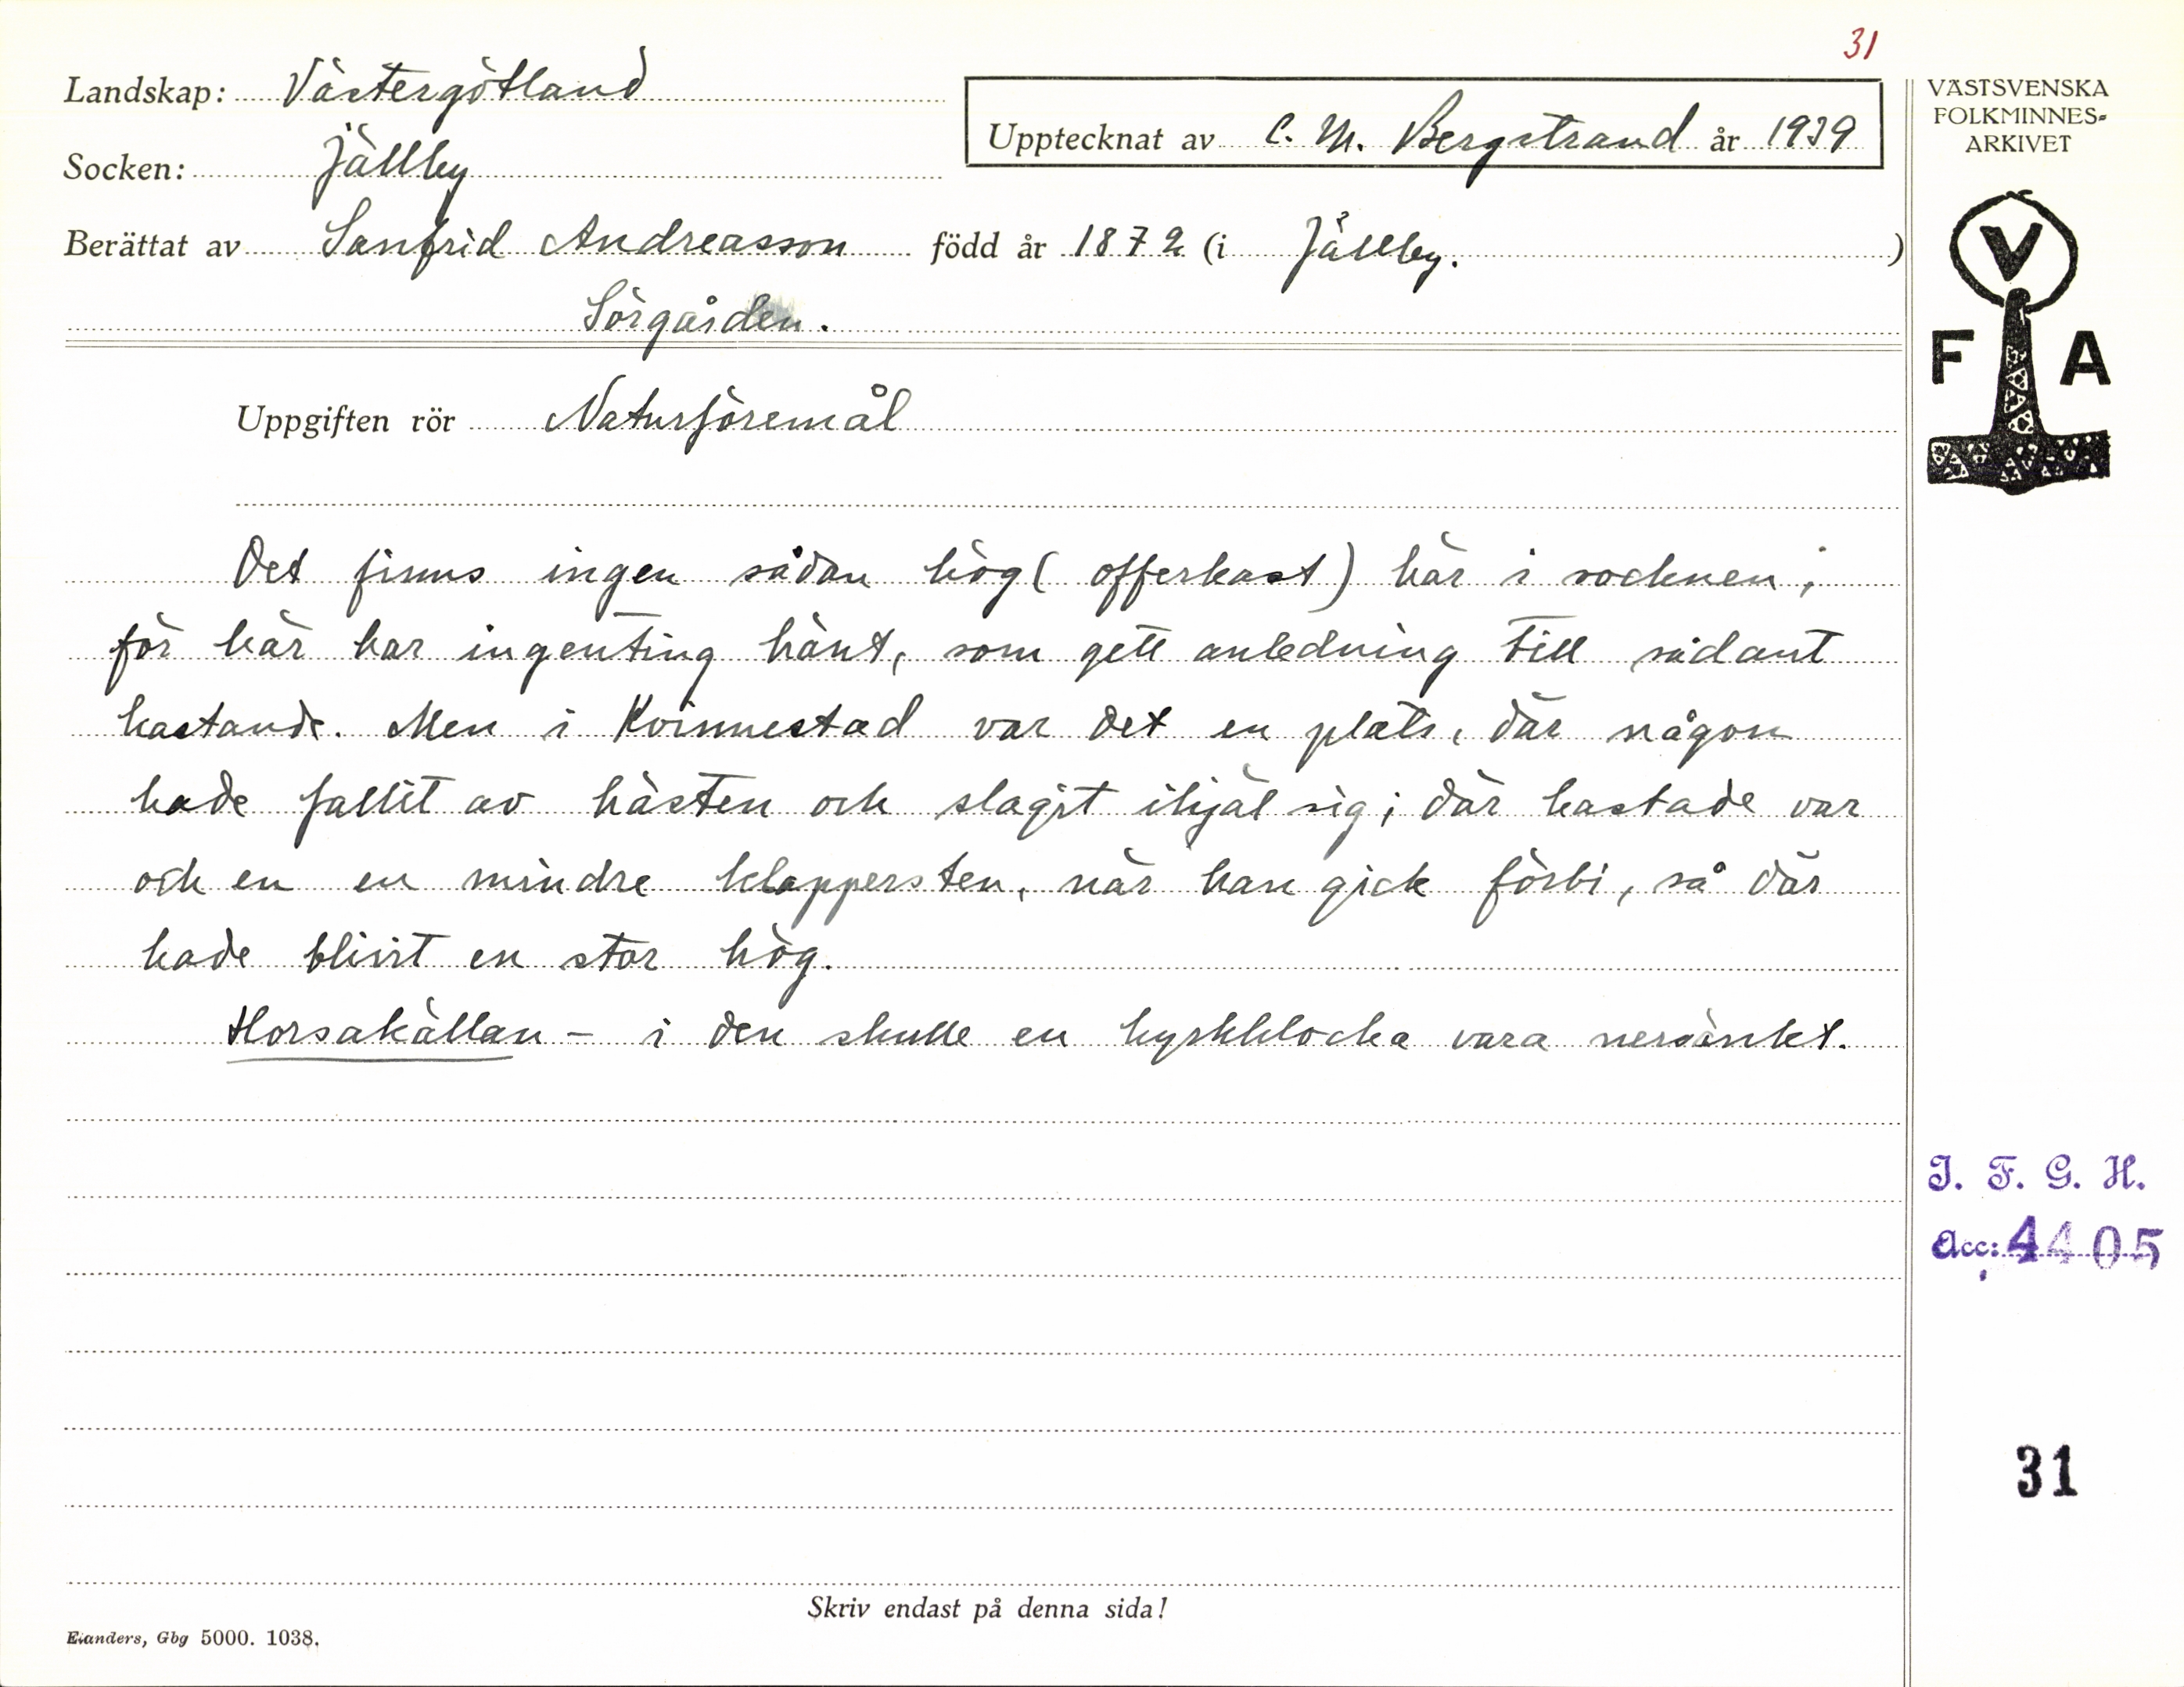 31
Landskap: Västergötland
Upptecknat av C. M. Bergstrand år 1939
Socken: Jällby
Berättat av Sanfrid Andreasson född år 1872 (i Jällby.)
Sörgården.
Uppgiften rör Naturföremål
Det finns ingen sådan hög (offerkast) här i socknen;
för här har ingenting hänt, som gett anledning till sådant
kastande. Men i Kvinnestad var det en plats, där någon
hade fallit av hästen och slagit ihjäl sig; där kastade var
och en en mindre klappersten, när han gick förbi, så där
hade blivit en stor hög.
Horsakällan - i den skulle en kyrkklocka vara nersänkt.
Skriv endast på denna sida!
Elanders, Gbg 5000. 1038.
VÄSTSVENSKA
FOLKMINNES=
ARKIVET
V
F A
I. F. G. H.
Acc: 4405
31